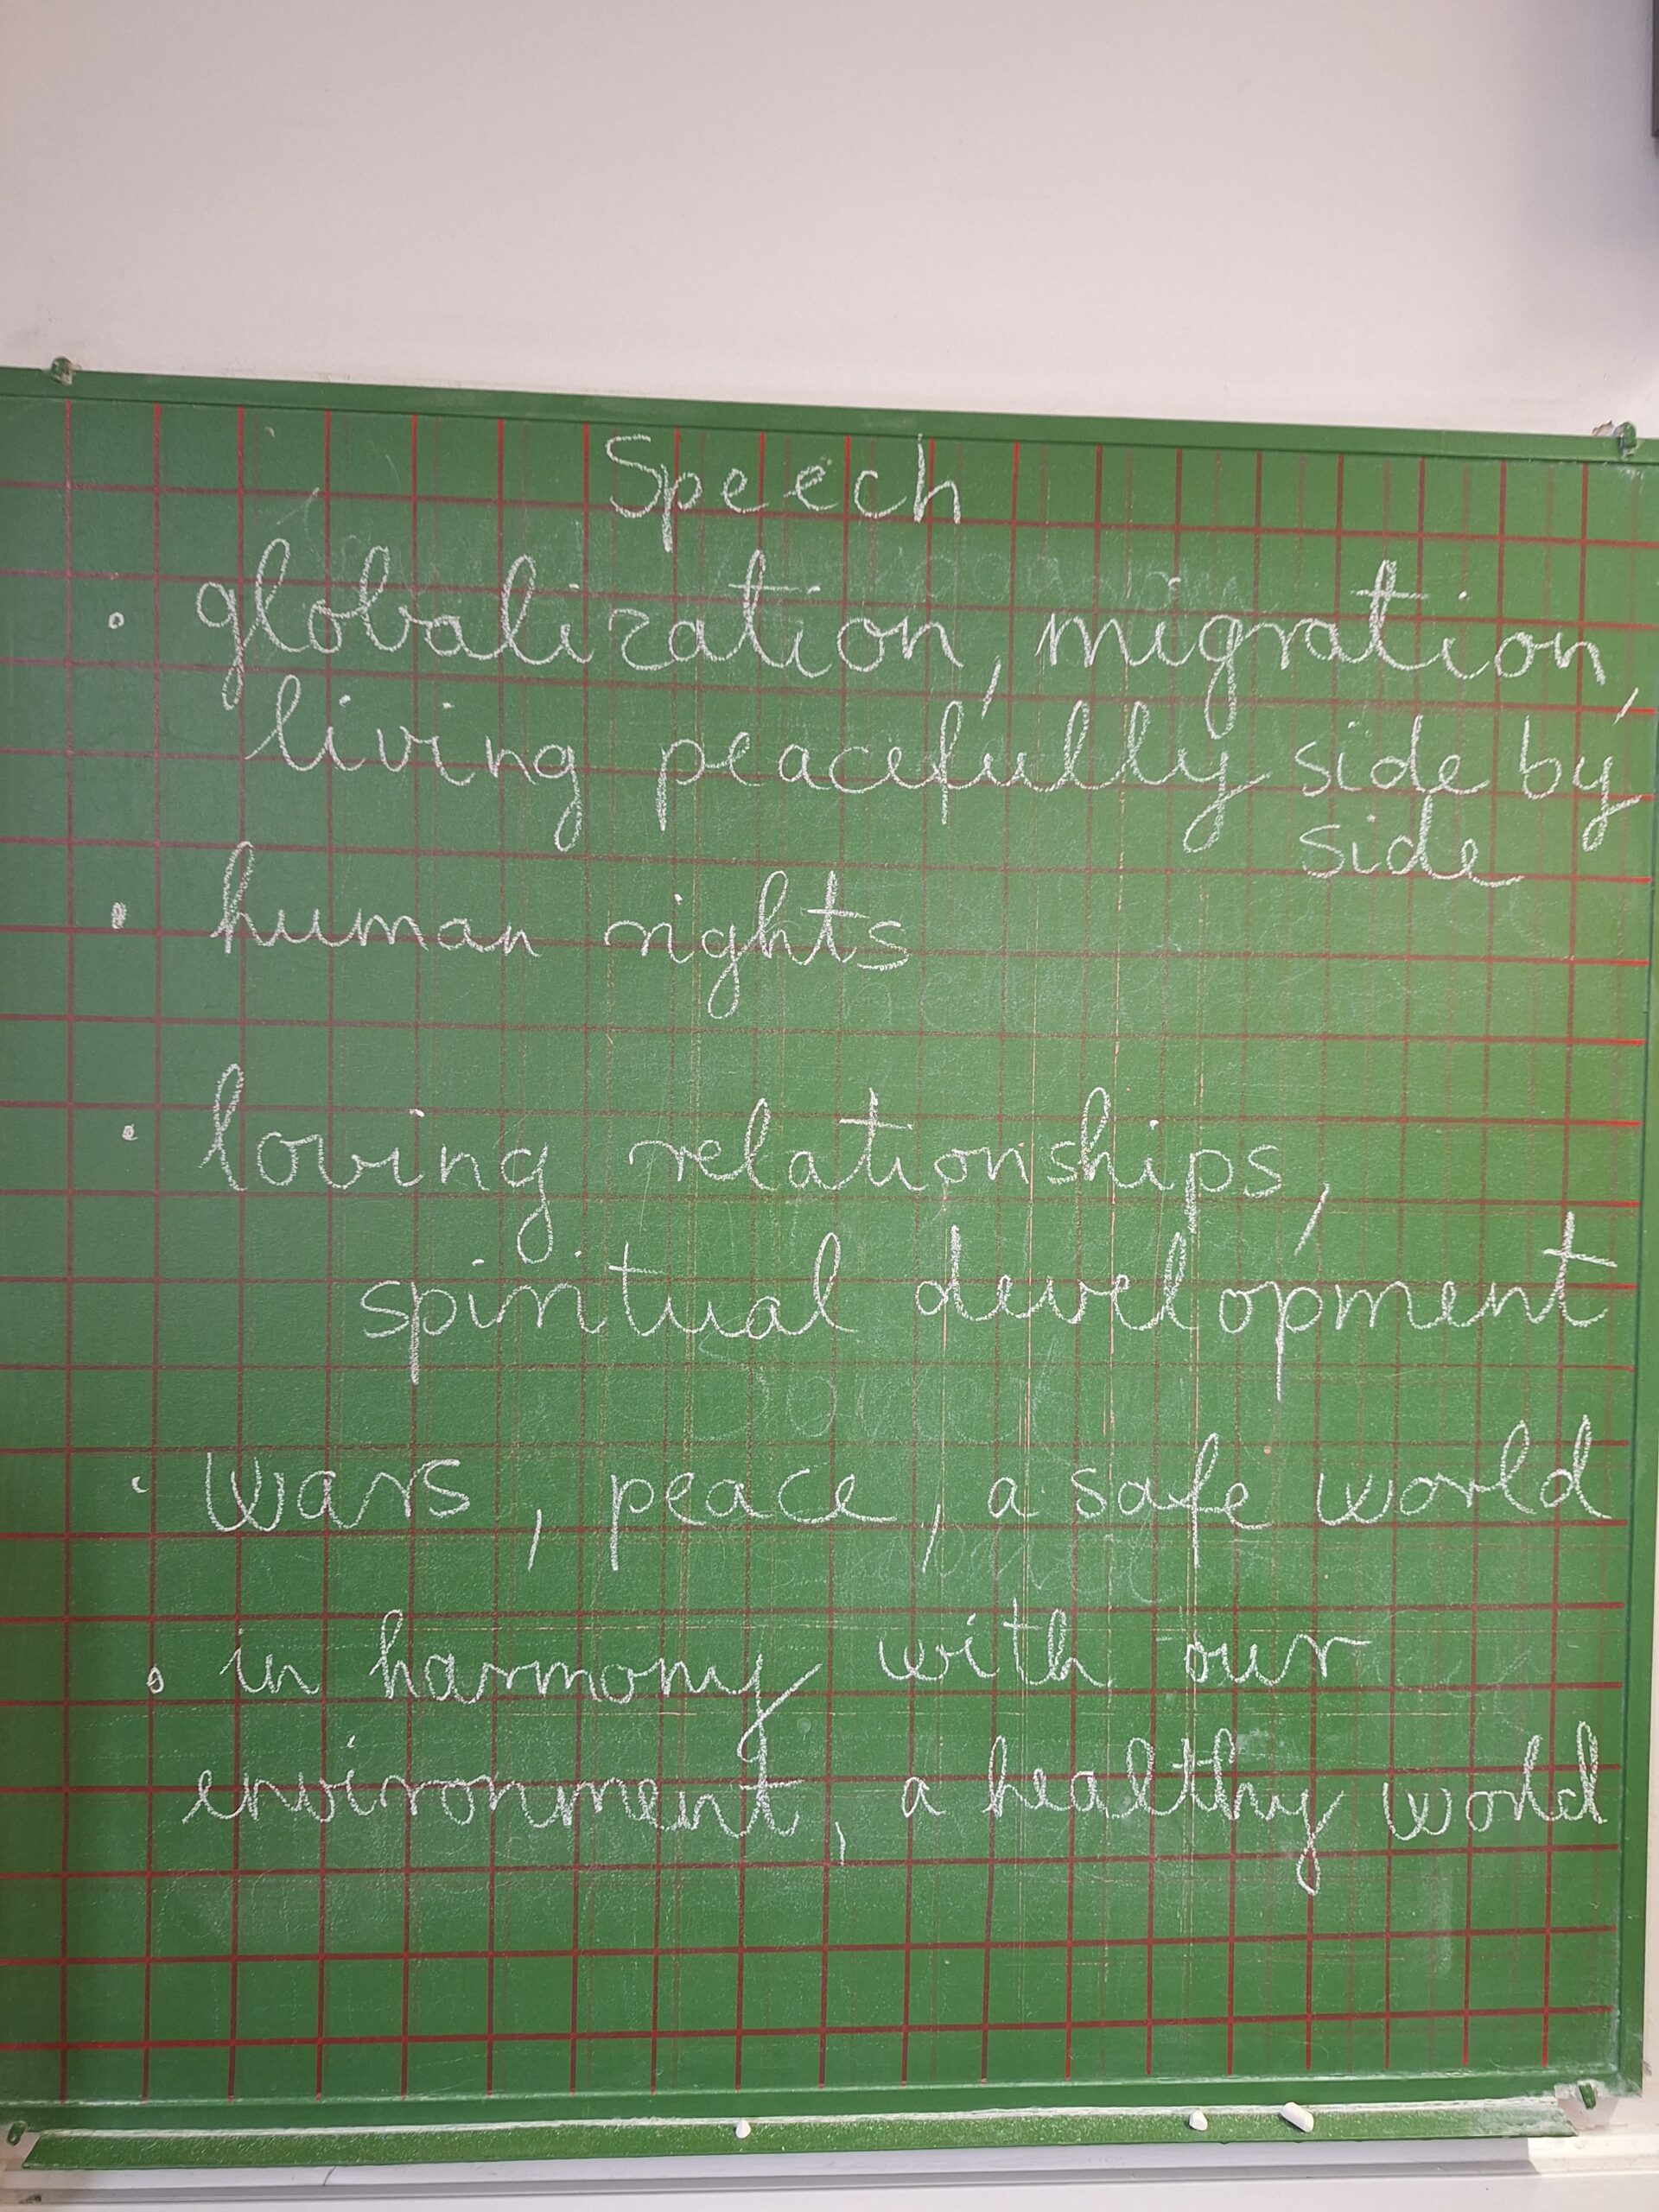 Speech
• globalization, migration,
living peacefully side by
side
• human rights
• loving relationships,
spiritual development
• wars, peace, a safe world
• in harmony with our
environment, a healthy world